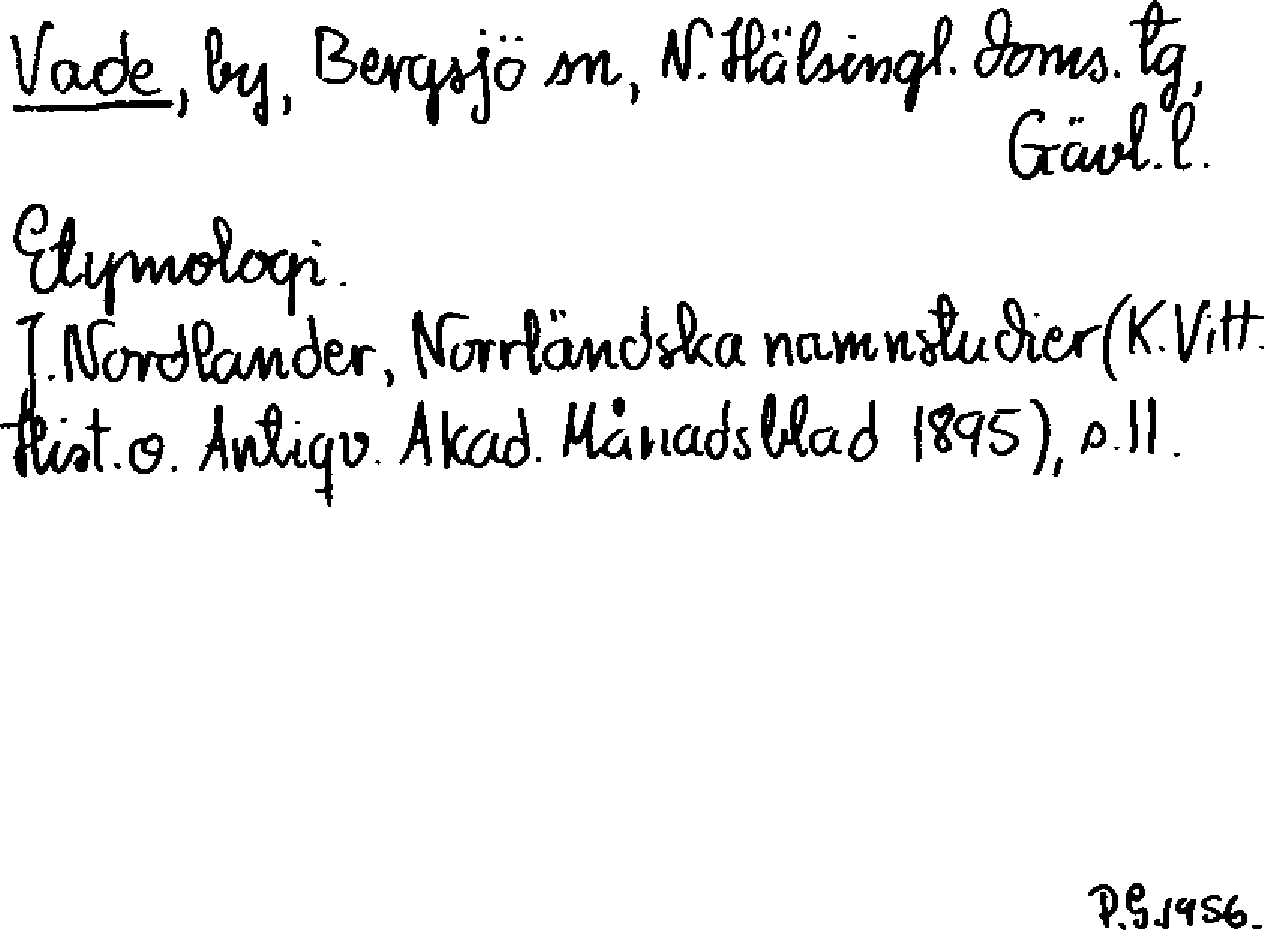 Vade, by, Bergsjö sn, N. Hälsingl. doms. tg,
Gävl. l.
Etymologi.
J. Nordlander, Norrländska namnstudier (K. Vitt.
Hist. o. Antiqv. Akad. Månadsblad 1895), s. 11.
P.G. 1956.